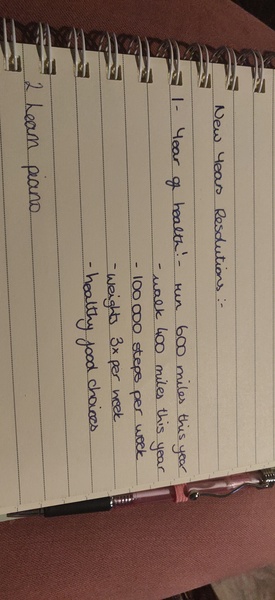 New Years Resolutions :-
1- Year of health! - run 600 miles this year
- walk 400 miles this year
- 100 000 steps per week
- weights 3x per week
- healthy food choices
2 Learn piano